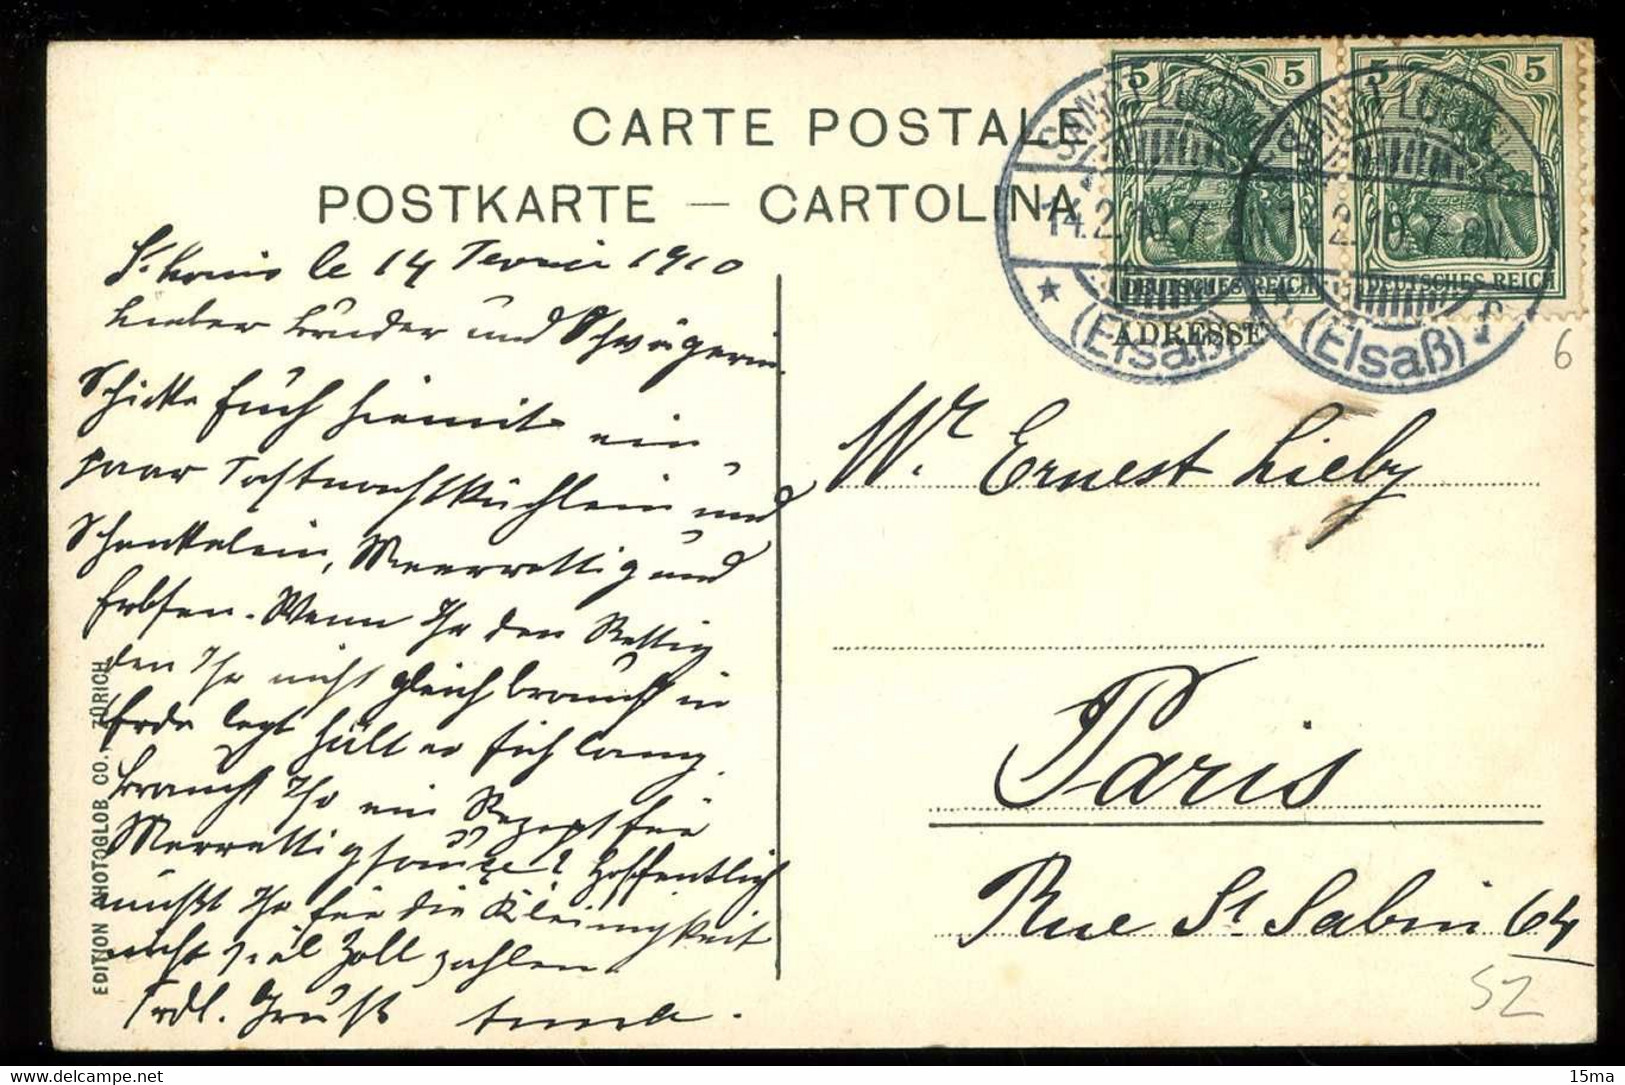 CARTE POSTALE
POSTKARTE — CARTOLINA
ADRESSE
5 5
DEUTSCHES REICH
5 5
DEUTSCHES REICH
SANKT LUDWIG
14.2.10.7-8N
(Elsaß)
SANKT LUDWIG
14.2.10.7-8N
(Elsaß)
6
St. Louis le 14 Fevrier 1910
Lieber Bruder und Schwägerin.
Schicke Euch hiemit ein
paar Fastnachtküchlein und
Schenkelein, Meerrettig und
Erbsen. Wenn Ihr den Rettig
den Ihr nicht gleich braucht in
Erde legt hält er sich lang.
Braucht Ihr ein Rezept für
Meerrettigsauce? Hoffentlich
müßt Ihr für die Kleinigkeit
nicht viel Zoll zahlen
Frdl. Gruß
Mr. Ernest Lieby
Paris
Rue St Sabin 64
52
EDITION PHOTOGLOB CO., ZÜRICH
15ma